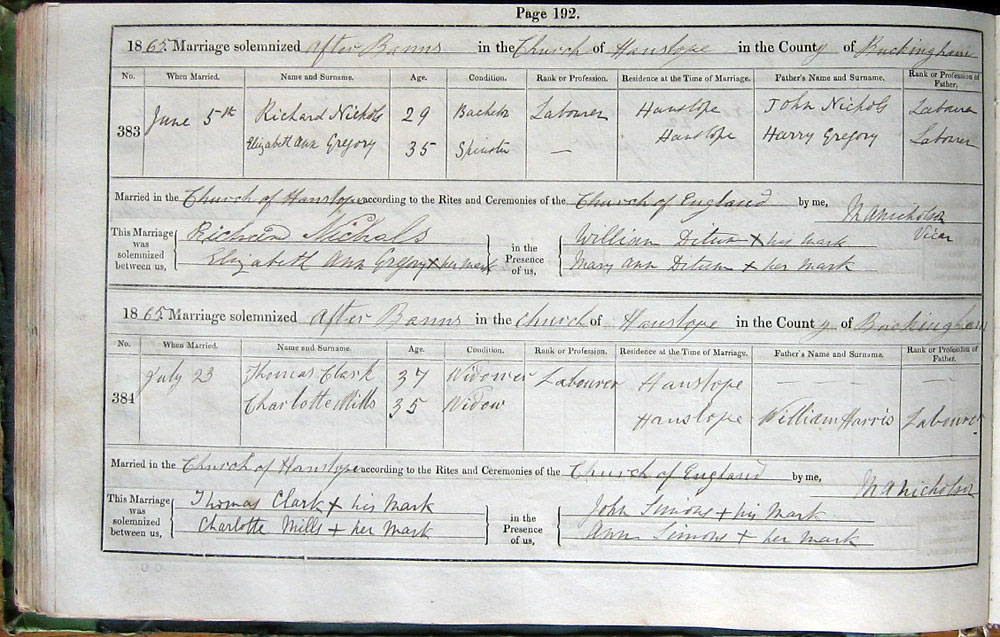 Page 192.
1865. Marriage solemnized After Banns in the Church of Hanslope in the County of Buckingham
No. When Married. Name and Surname. Age. Condition. Rank or Profession. Residence at the Time of Marriage. Father's Name and Surname. Rank or Profession of Father.
383 June 5th Richard Nichols 29 Bachelor Labourer Hanslope John Nichols Labourer
Elizabeth Ann Gregory 35 Spinster — Hanslope Harry Gregory Labourer
Married in the Church of Hanslope according to the Rites and Ceremonies of the Church of England by me, M A Nicholson
Vicar
This Marriage was solemnized between us, Richard Nichols in the Presence of us, William x his mark
Elizabeth Ann Gregory x her mark Mary Ann x her mark
1865. Marriage solemnized After Banns in the Church of Hanslope in the County of Buckingham
No. When Married. Name and Surname. Age. Condition. Rank or Profession. Residence at the Time of Marriage. Father's Name and Surname. Rank or Profession of Father.
384 July 23 Thomas Clark 37 Widower Labourer Hanslope — — —
Charlotte Mills 35 Widow Hanslope William Harris Labourer
Married in the Church of Hanslope according to the Rites and Ceremonies of the Church of England by me, M A Nicholson
This Marriage was solemnized between us, Thomas Clark x his mark in the Presence of us, John Simons + his mark
Charlotte Mills + her mark Ann Simons + her mark